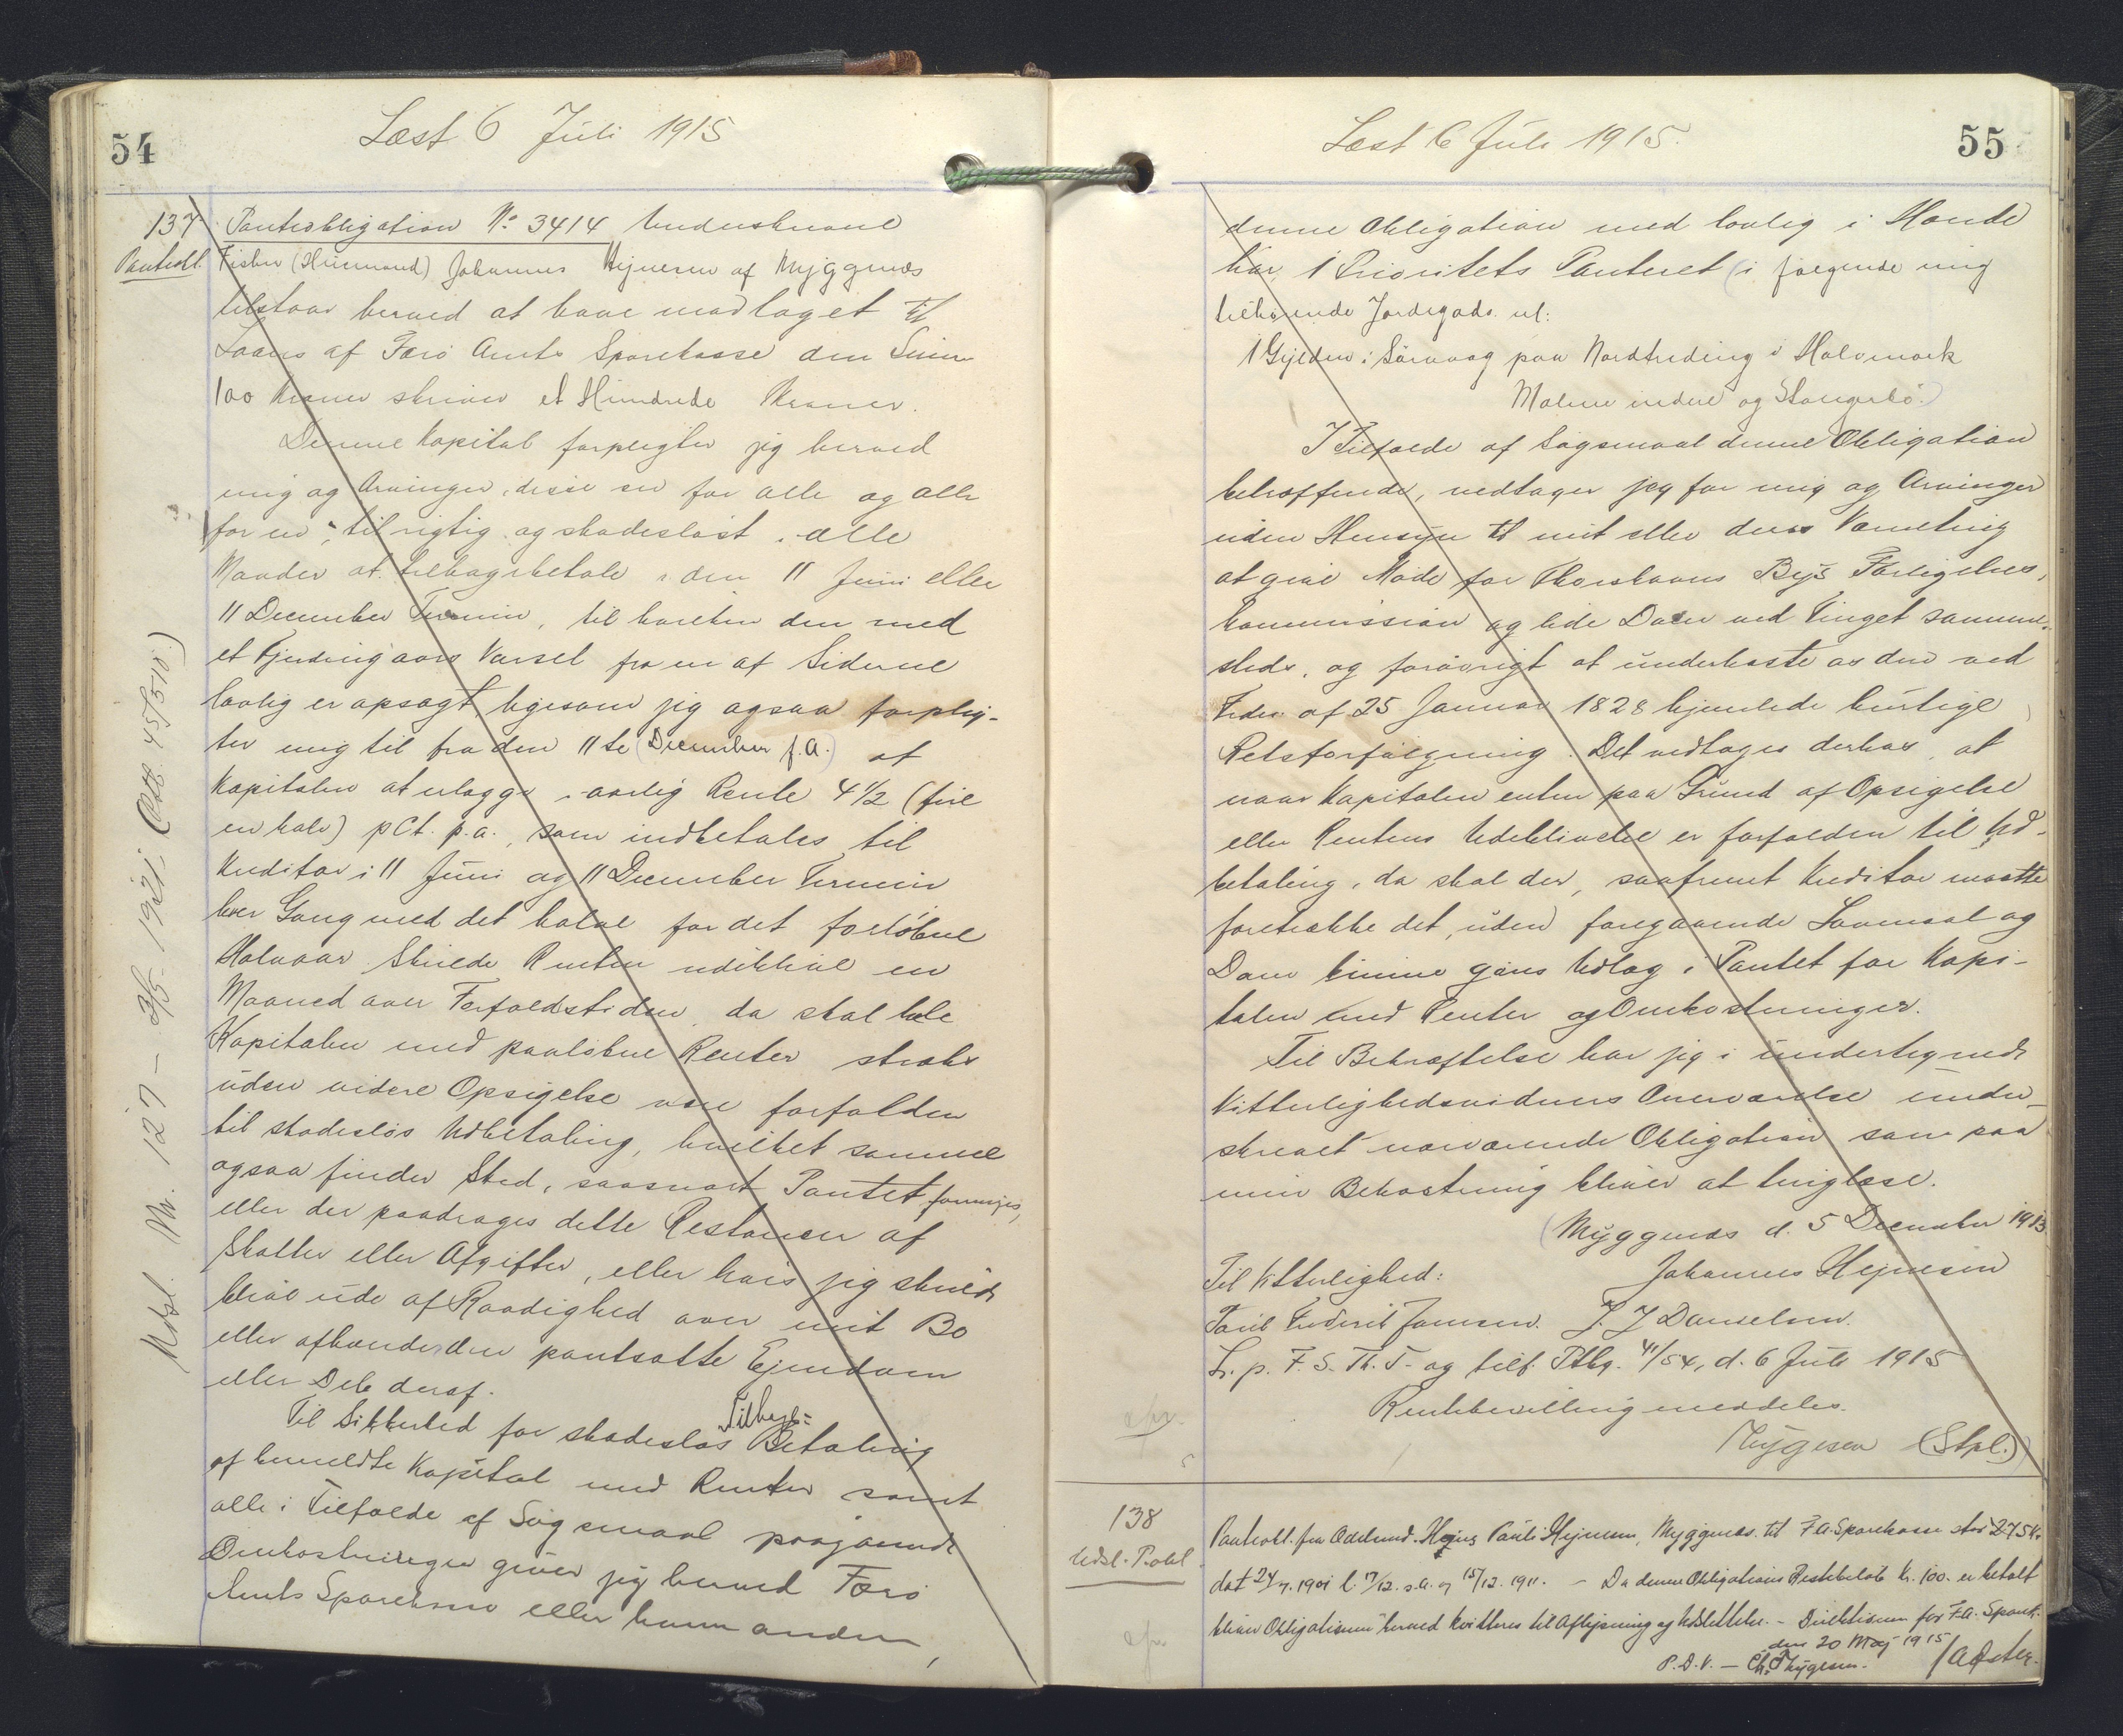 54
Læst 6 Juli 1915
137
Pantobl.
Pantobligation No 3414 Underskrevne
Fisker (Huusmand) Johannes Hejnesen af Myggenæs
tilstaar herved at have modtaget til
Laans af Færø Amts Sparekasse den Sum
100 Kroner skriver et Hundrede Kroner.
Denne Kapital forpligter jeg herved
mig og Arvinger, disse en for alle og alle
for en, til rigtig og skadesløst i alle
Maader at tilbagebetale i den 11 Juni eller
11 December Termin, til hvilken den med
et Fjerdingaars Varsel fra en af Siderne
lovlig er opsagt, ligesom jeg ogsaa forplig-
ter mig til fra den 11te (December f. A.) at
Kapitalen at erlægge i aarlig Rente 4 1/2 (fire
en halv) pCt. p.a., som indbetales til
Kreditor i 11 Juni og 11 December Termin
hver Gang med det halve for det forløbne
Halvaar. Skulde Renten udeblive en
Maaned over Forfaldstiden, da skal hele
Kapitalen med paaløbne Renter straks
uden videre Opsigelse være forfalden
til skadesløs Udbetaling, hvilket samme
ogsaa finder Sted, saasnart Pantet forringes,
eller der paadrages dette Restancer af
Skatter eller Afgifter, eller hvis jeg skulde
blive ude af Raadighed over mit Bo
eller afhænder den pantsatte Ejendom
eller Dele deraf.
Til Sikkerhed for skadesløs Tilbage-
Betaling
af bemeldte Kapital med Renter samt
alle i Tilfælde af Søgsmaal paagaaende
Omkostninger giver jeg herved Færø
Amts Sparekasse eller hvem anden
Udsl. Nr. 127 - 3/5 1921. (Att. 45/510.)
Læst 6 Juli 1915.
55
denne Obligation med lovlig i Hænde
har, 1 Prioritets Panteret (i følgende mig
tilhørende Jordegods nl:
1 Gylden i Sørvaag paa Nordtreding i Halvmark
Malene indre og Stangerbø.)
I Tilfælde af Søgsmaal denne Obligation
betræffende, vedtager jeg for mig og Arvinger
uden Hensyn til mit eller deres Værneting
at give Møde for Thorshavns By's Forligelses-
kommission og lide Dom ved Tinget sammen-
steds, og forøvrigt at underkaste os den ved
Frdn. af 25 Januar 1828 hjemlede hurtige
Retsforfølgning. Det vedtages derhos, at
naar Kapitalen enten paa Grund af Opsigelse
eller Rentens Udeblivelse er forfalden til Ud-
betaling, da skal der, saafremt Kreditor maatte
foretrække det, uden foregaaende Lovmaal og
Dom kunne gøres Udlæg i Pantet for Kapi-
talen med Renter og Omkostninger.
Til Bekræftelse har jeg i undertegnede
Vitterlighedsvidners Overværelse under-
skrevet nærværende Obligation som paa
min Bekostning bliver at tinglæse.
(Myggenæs d. 5 December 1913
Til Vitterlighed: Johannes Hejnesen
Poul Frederik Joensen. J. J Danielsen.
L. p. F. S. Th. T. og tilf. Ptbg. 41/54, d. 6 Juli 1915
Rentebevilling meddeles.
Thygesen (Stpl.)
138
Udsl. P.obl
Pantobl. fra Odelsmd. Hejne Pauli Hejnesen, Myggenæs til F. A. Sparekasse stor 275 Kr.
dat 24/7. 1901 l. 17/12. s. A. og 15/12. 1911. - Da denne Obligations Restebeløb Kr. 100. er betalt
bliver Obligationen herved kvitteret til Aflysning og Udslettelse. - Direktionen for F.A. Spark.
den 20 Maj 1915
P.D.V. - Ch. Thygesen.